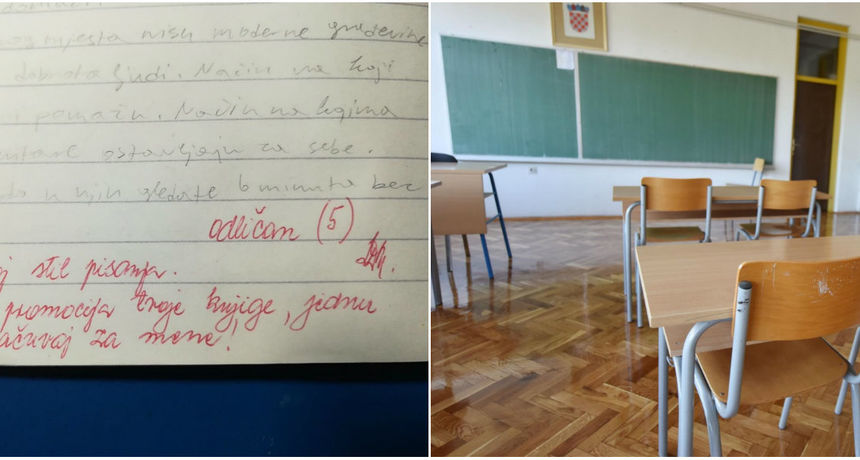 mjesta nisu moderne građevine
dobrota ljudi. Način na koji
i pomažu. Način na kojima
ostavljaju za sebe.
u njih gledate 6 minuta bez
odličan (5)
j stil pisanja.
promocija tvoje knjige, jednu
ačuvaj za mene!